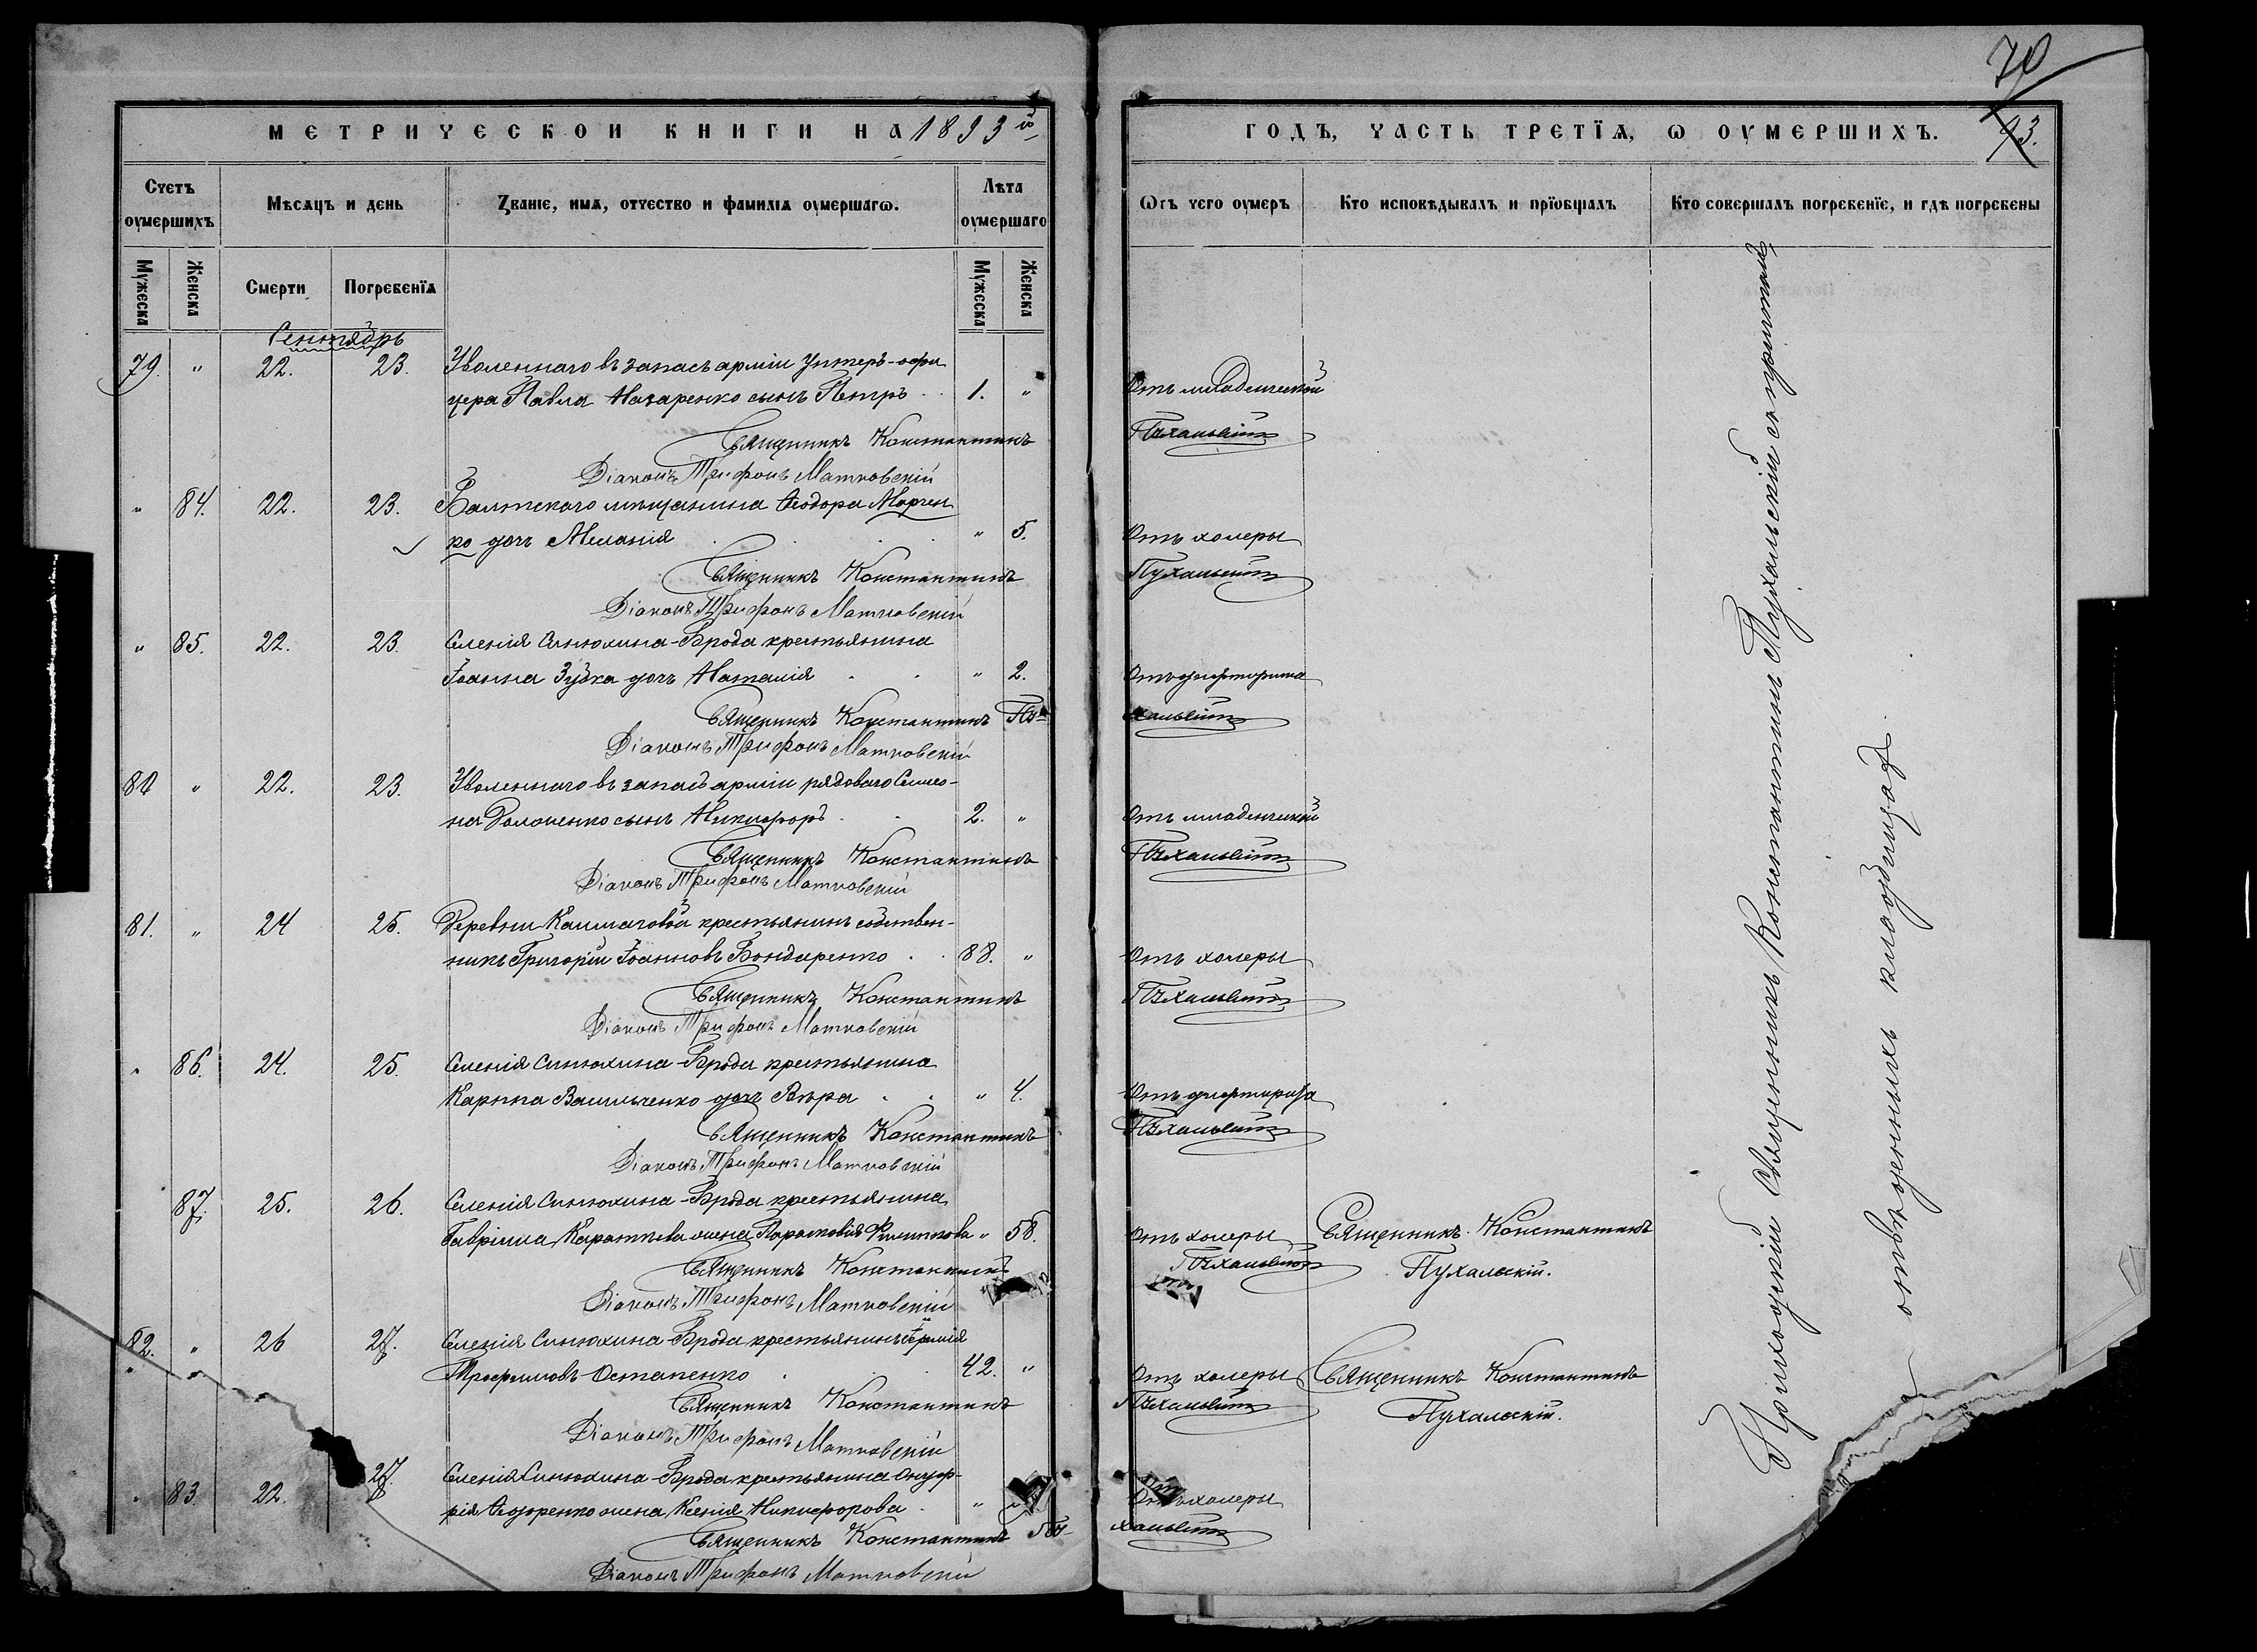 МЕТРИЧЕСКОИ КНИГИ НА 1893й
Счетъ оумершихъ
Мѣсяцъ и день
Званіе, имя, отчество и фамилія оумершагω.
Лѣта оумершаго
Мужеска
Женска
Смерти
Погребенїя
Мужеска
Женска
Сентябрь
79. " 22. 23. Уволеннаго въ запасъ арміи унтеръ-офи
цера Павла Назаренко сынъ Петръ 1. "
Священникъ Константинъ
Діаконъ Трифонъ Матковскій
" 84. 22. 23. Балтскаго мѣщанина Ѳеодора Марчен
ко дочь Меланія " 5.
Священникъ Константинъ
Діаконъ Трифонъ Матковскій
" 85. 22. 23. Селенія Синюхина-Брода крестьянина
Іоанна Зубка дочь Наталія " 2.
Священникъ Константинъ Пу-
Діаконъ Трифонъ Матковскій
80 " 22. 23. Уволеннаго въ запасъ арміи рядоваго Симео-
на сынъ Никифоръ 2. "
Священникъ Константинъ
Діаконъ Трифонъ Матковскій
81. " 24 25. Деревни крестьянинъ собствен-
никъ Григорій Іоанновъ Бондаренко 88. "
Священникъ Константинъ
Діаконъ Трифонъ Матковскій
" 86. 24. 25. Селенія Синюхина-Брода крестьянина
Карпа Васильченко дочь Вѣра " 4.
Священникъ Константинъ
Діаконъ Трифонъ Матковскій
87. 25. 26. Селенія Синюхина-Брода крестьянина
Гавріила жена Параскевія " 58.
Священникъ Константинъ
Діаконъ Трифонъ Матковскій
82. " 26 27. Селенія Синюхина-Брода крестьянинъ
Трофимовъ Остапенко 42. "
Священникъ Константинъ
Діаконъ Трифонъ Матковскій
" 83. 22. 27. Селенія Синюхина-Брода крестьянина Онуф-
рія Ѳедоренко жена Ксенія Никифорова "
Священникъ Константинъ Пу-
Діаконъ Трифонъ Матковскій
70
93.
ГОДЪ, ЧАСТЬ ТРЕТЇЯ, Ѡ ОУМЕРШИХЪ.
Ѿъ чего оумеръ
Кто исповѣдывалъ и прїѡбщалъ
Кто совершалъ погребенїе, и гдѣ погребены
Отъ младенческой
Пухальскій
Отъ холеры
Пухальскій
Отъ дифтерита
хальскій
Отъ младенческой
Пухальскій
Отъ холеры
Пухальскій
Отъ дифтерита
Пухальскій
Отъ холеры Священникъ Константинъ
Пухальскій Пухальскій.
Отъ холеры Священникъ Константинъ
Пухальскій Пухальскій.
Отъ холеры
хальскій
Приходскій Священникъ Константинъ Пухальскій съ причтомъ,
на отведенныхъ кладбищахъ.